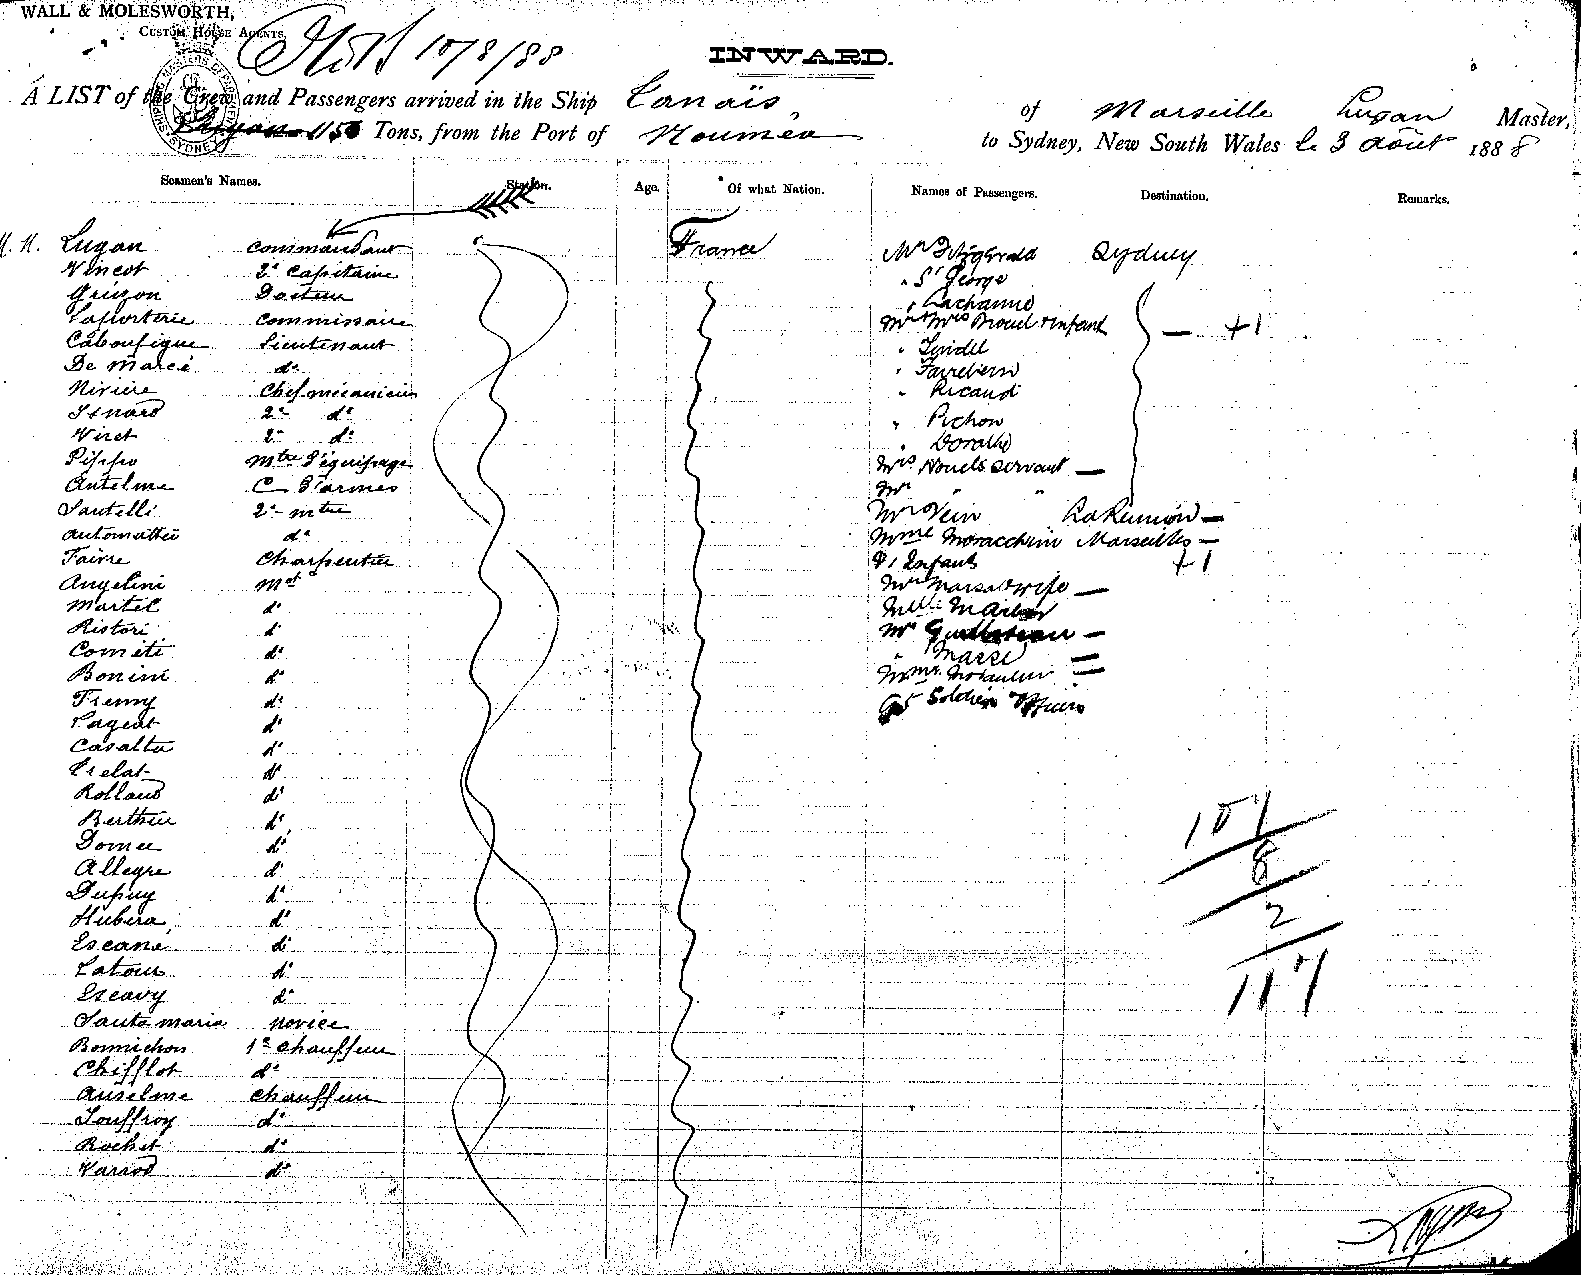 WALL & MOLESWORTH,
CUSTOM HOUSE AGENTS.
10/8/88
INWARD.
A LIST of the Crew and Passengers arrived in the Ship Tanaïs of Marseille Lugan Master,
115 Tons, from the Port of Nouméa to Sydney, New South Wales le 3 août 1888
Seamen's Names. Station. Age. Of what Nation. Names of Passengers. Destination. Remarks.
Lugan commandant France Mr Fitzgerald Sydney
Vincot 2e Capitaine " St George
Grizon Docteur " Lachaume
Laporterie Commissaire Mr & Mrs Brouel & Infant +1
Caboufigue Lieutenant " Lindel
De Marcé do "
Rivière Chef mécanicien " Ricaud
Isnard 2e do " Pichon
Viret 2e do "
Pippo Mtre d'équipage Mrs servant
Antelme C. d'armes Mr " "
Santelli 2e mtre Mr Vein La Réunion
Automathei do Mme Moracchini Marseilles
Faivre Charpentier & 1 Infant +1
Angelini Mot Mr & wife
Martel do Melle
Ristori do Mr
Cometi do "
Bonini do Mme
Fremy do Soldiers Officers
Pageot do
Casalta do
Prelat do
Rolland do
Berthier do
Domer do
Allegre do
Dupuy do
Hubera do
Escane do
Latour do
Escavy do
Santamaria novice
Bonnichon 1er Chauffeur
Chifflot do
Anselme Chauffeur
Jouffroy do
Rochet do
Varaod do
107
8
2
117